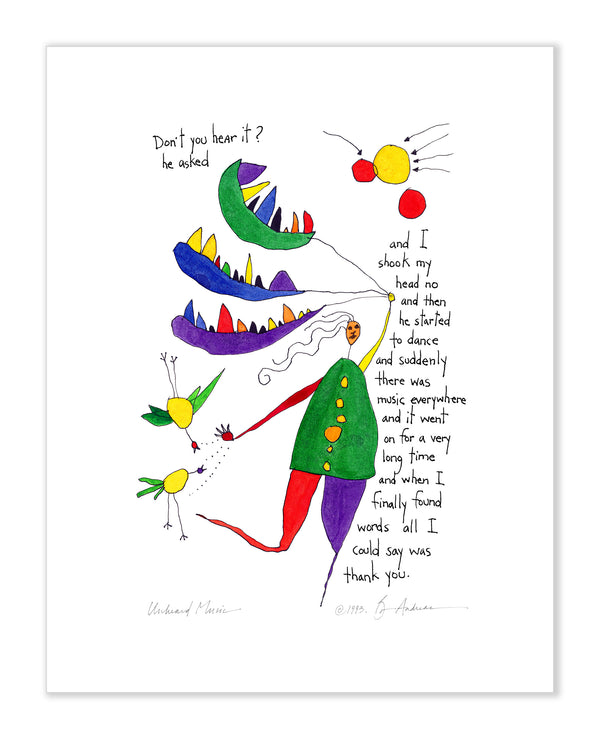 Don't you hear it?
he asked
and I
shook my
head no
and then
he started
to dance
and suddenly
there was
music everywhere
and it went
on for a very
long time
and when I
finally found
words all I
could say was
thank you.
Unheard Music
© 1993. Andreas